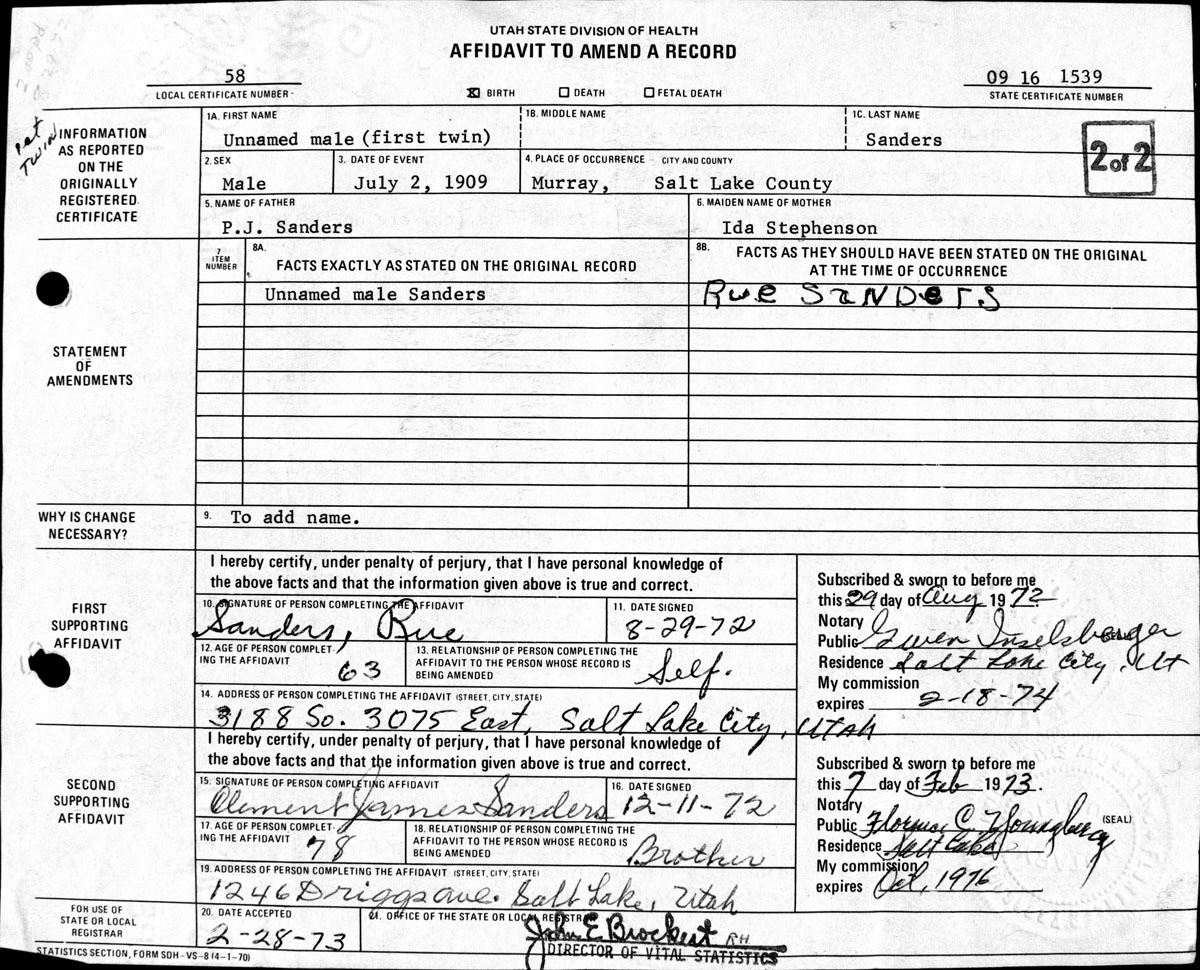 UTAH STATE DIVISION OF HEALTH
AFFIDAVIT TO AMEND A RECORD
58
LOCAL CERTIFICATE NUMBER
☒ BIRTH ☐ DEATH ☐ FETAL DEATH
09 16 1539
STATE CERTIFICATE NUMBER
TWIN
INFORMATION
AS REPORTED
ON THE
ORIGINALLY
REGISTERED
CERTIFICATE
1A. FIRST NAME
Unnamed male (first twin)
1B. MIDDLE NAME
1C. LAST NAME
Sanders
2 of 2
2. SEX
Male
3. DATE OF EVENT
July 2, 1909
4. PLACE OF OCCURRENCE - CITY AND COUNTY
Murray, Salt Lake County
5. NAME OF FATHER
P.J. Sanders
6. MAIDEN NAME OF MOTHER
Ida Stephenson
STATEMENT
OF
AMENDMENTS
7
ITEM
NUMBER
8A.
FACTS EXACTLY AS STATED ON THE ORIGINAL RECORD
8B. FACTS AS THEY SHOULD HAVE BEEN STATED ON THE ORIGINAL
AT THE TIME OF OCCURRENCE
Unnamed male Sanders
Rue SANDerS
WHY IS CHANGE
NECESSARY?
9. To add name.
FIRST
SUPPORTING
AFFIDAVIT
I hereby certify, under penalty of perjury, that I have personal knowledge of
the above facts and that the information given above is true and correct.
10. SIGNATURE OF PERSON COMPLETING THE AFFIDAVIT
Sanders, Rue
11. DATE SIGNED
8-29-72
12. AGE OF PERSON COMPLET-
ING THE AFFIDAVIT
63
13. RELATIONSHIP OF PERSON COMPLETING THE
AFFIDAVIT TO THE PERSON WHOSE RECORD IS
BEING AMENDED
Self.
14. ADDRESS OF PERSON COMPLETING THE AFFIDAVIT (STREET, CITY, STATE)
3188 So. 3075 East, Salt Lake City, Utah
Subscribed & sworn to before me
this 29 day of Aug 1972
Notary
Public Gwen Inselsberger (SEAL)
Residence Salt Lake City, Ut
My commission
expires 2-18-74
SECOND
SUPPORTING
AFFIDAVIT
I hereby certify, under penalty of perjury, that I have personal knowledge of
the above facts and that the information given above is true and correct.
15. SIGNATURE OF PERSON COMPLETING AFFIDAVIT
Clement James Sanders
16. DATE SIGNED
12-11-72
17. AGE OF PERSON COMPLET-
ING THE AFFIDAVIT
78
18. RELATIONSHIP OF PERSON COMPLETING THE
AFFIDAVIT TO THE PERSON WHOSE RECORD IS
BEING AMENDED
Brother
19. ADDRESS OF PERSON COMPLETING THE AFFIDAVIT (STREET, CITY, STATE)
1246 Driggs ave. Salt Lake, Utah
Subscribed & sworn to before me
this 7 day of Feb 1973.
Notary
Public Florence C Youngberg (SEAL)
Residence Salt Lake
My commission
expires Oct, 1976
FOR USE OF
STATE OR LOCAL
REGISTRAR
20. DATE ACCEPTED
2-28-73
21. OFFICE OF THE STATE OR LOCAL REGISTRAR
John E. Brockert RH
DIRECTOR OF VITAL STATISTICS
STATISTICS SECTION, FORM SDH-VS-8 (4-1-70)